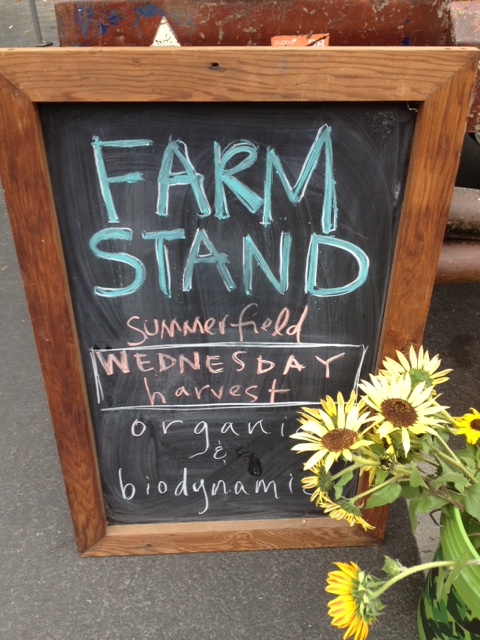 FARM
STAND
summerfield
WEDNESDAY
harvest
organic
&
biodynamic